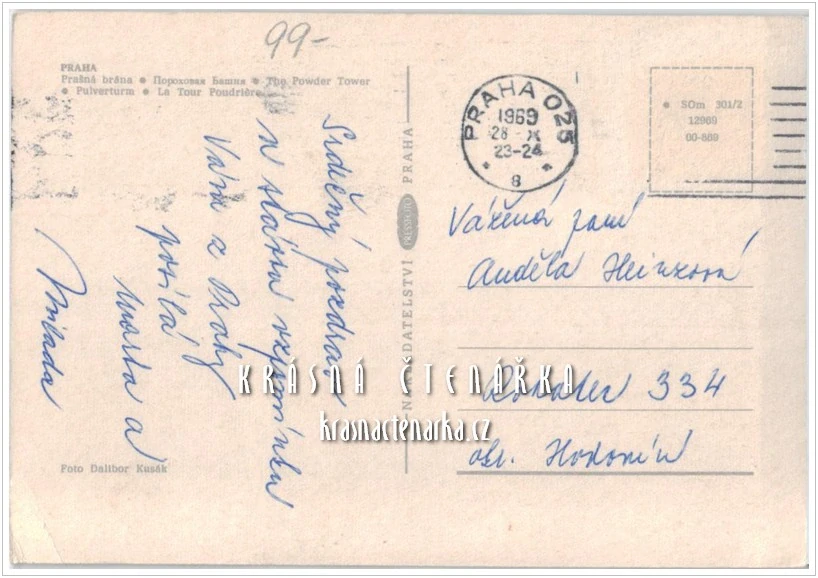 99-
PRAHA
Prašná brána • Пороховая Башня • The Powder Tower
• Pulverturm • La Tour Poudrière
Srdečný pozdrav
a stálou vzpomínku
Vám z Prahy
posílá
Marta a
Milada
Foto Dalibor Kusák
NAKLADATELSTVÍ PRESSFOTO PRAHA
PRAHA 025
1969
28 - X
23-24
8
• SOm 301/2
12969
00-869
Vážená paní
Anděla Heinzová
334
okr. Hodonín
KRÁSNÁ ČTENÁŘKA
krasnactenarka.cz